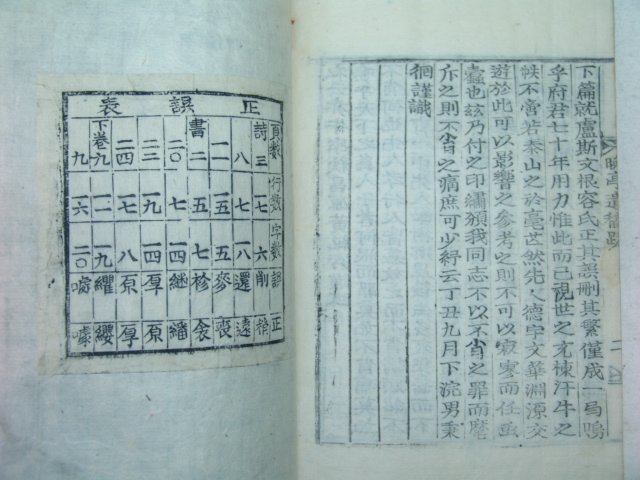 下篇就盧斯文根容氏正其誤刪其繁僅成一局嗚
乎府君七十年用力惟此而已視世之充棟汗牛之
帙不啻若泰山之於毫芒然先人德字文華淵源交
遊於此可以影響之參考之則不可以寂寥而任
蠹也玆乃付之印繡願我同志不以不肖之罪而麾
斥之則不肖之痛庶可少紓云丁丑九月下浣男秉
徊謹識
正誤表
頁數 行數 字數 誤 正
詩三 一七 六 削
八 七 一八 還 遠
一一 五 五 麥 喪
書二 五 七
二〇 四 一四 繼
二三 一九 一四 厚 原
二四 七 八 原 厚
下卷九 一六 一九 纙 纓
九 六 二〇